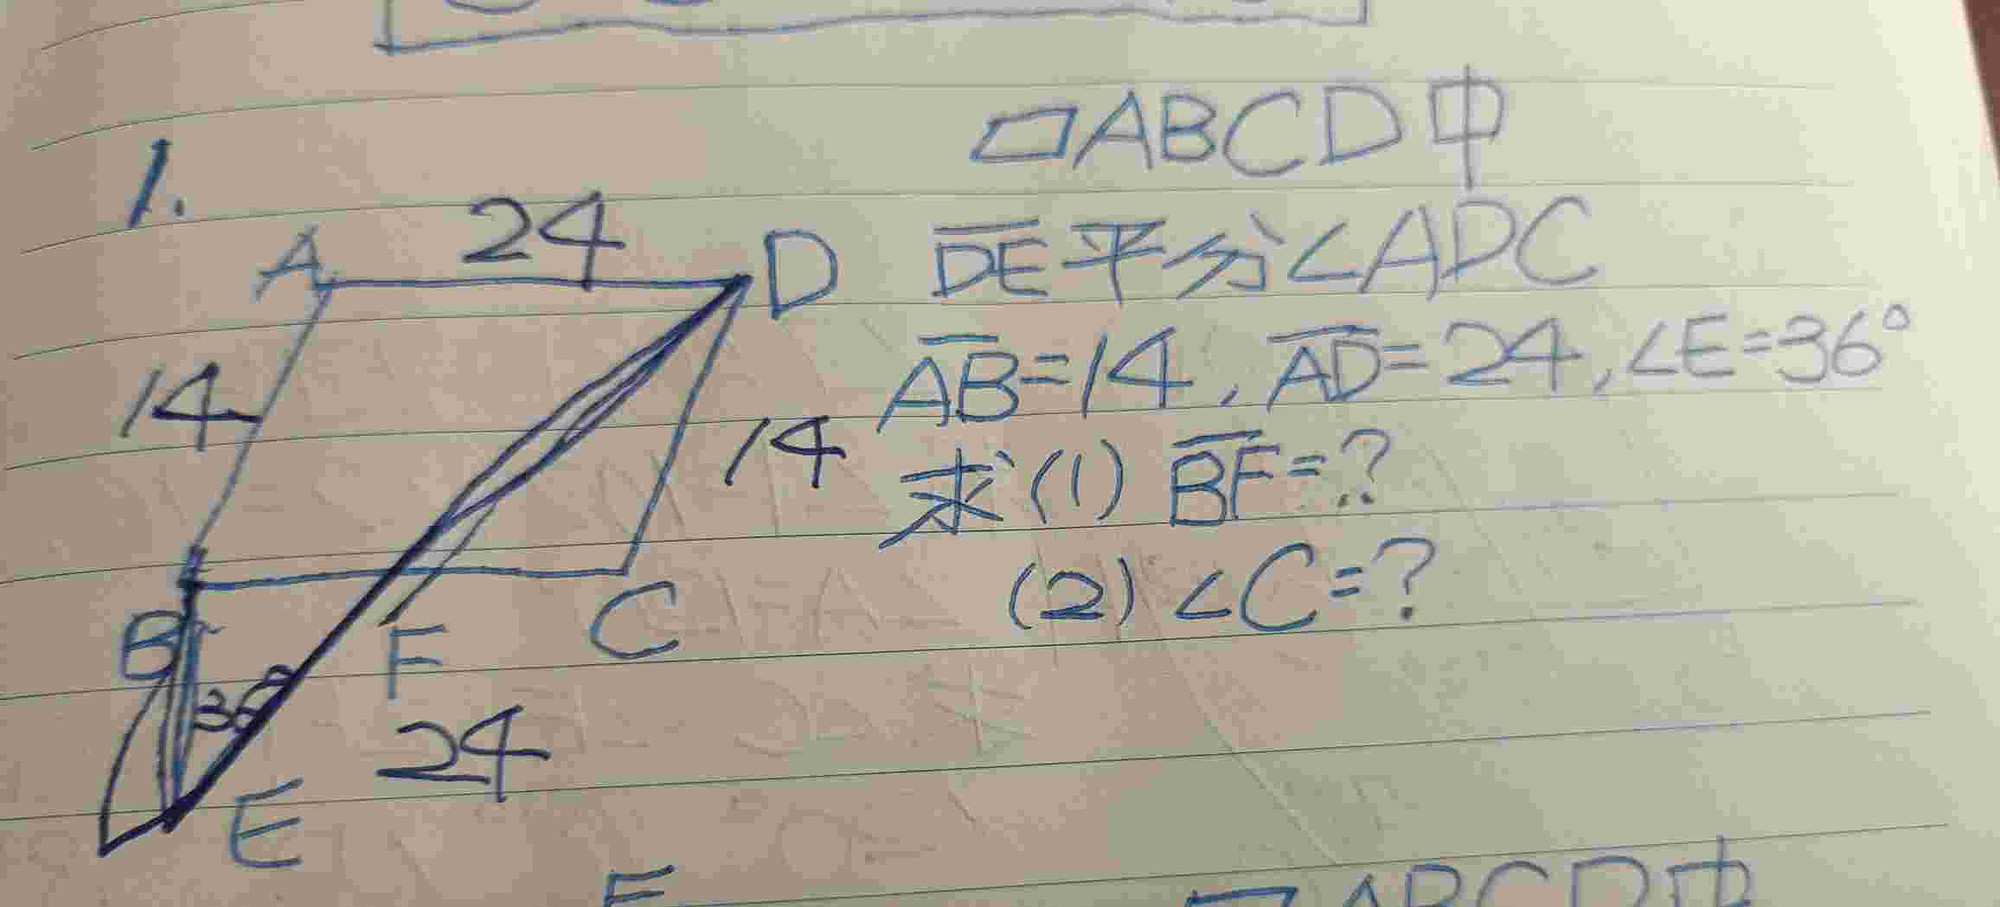 1.
24
A
D
14
14
B
F
C
36°
24
E
▱ABCD中
DE平分∠ADC
AB=14,AD=24,∠E=36°
求(1) BF=?
(2) ∠C=?
F
▱ABCD中